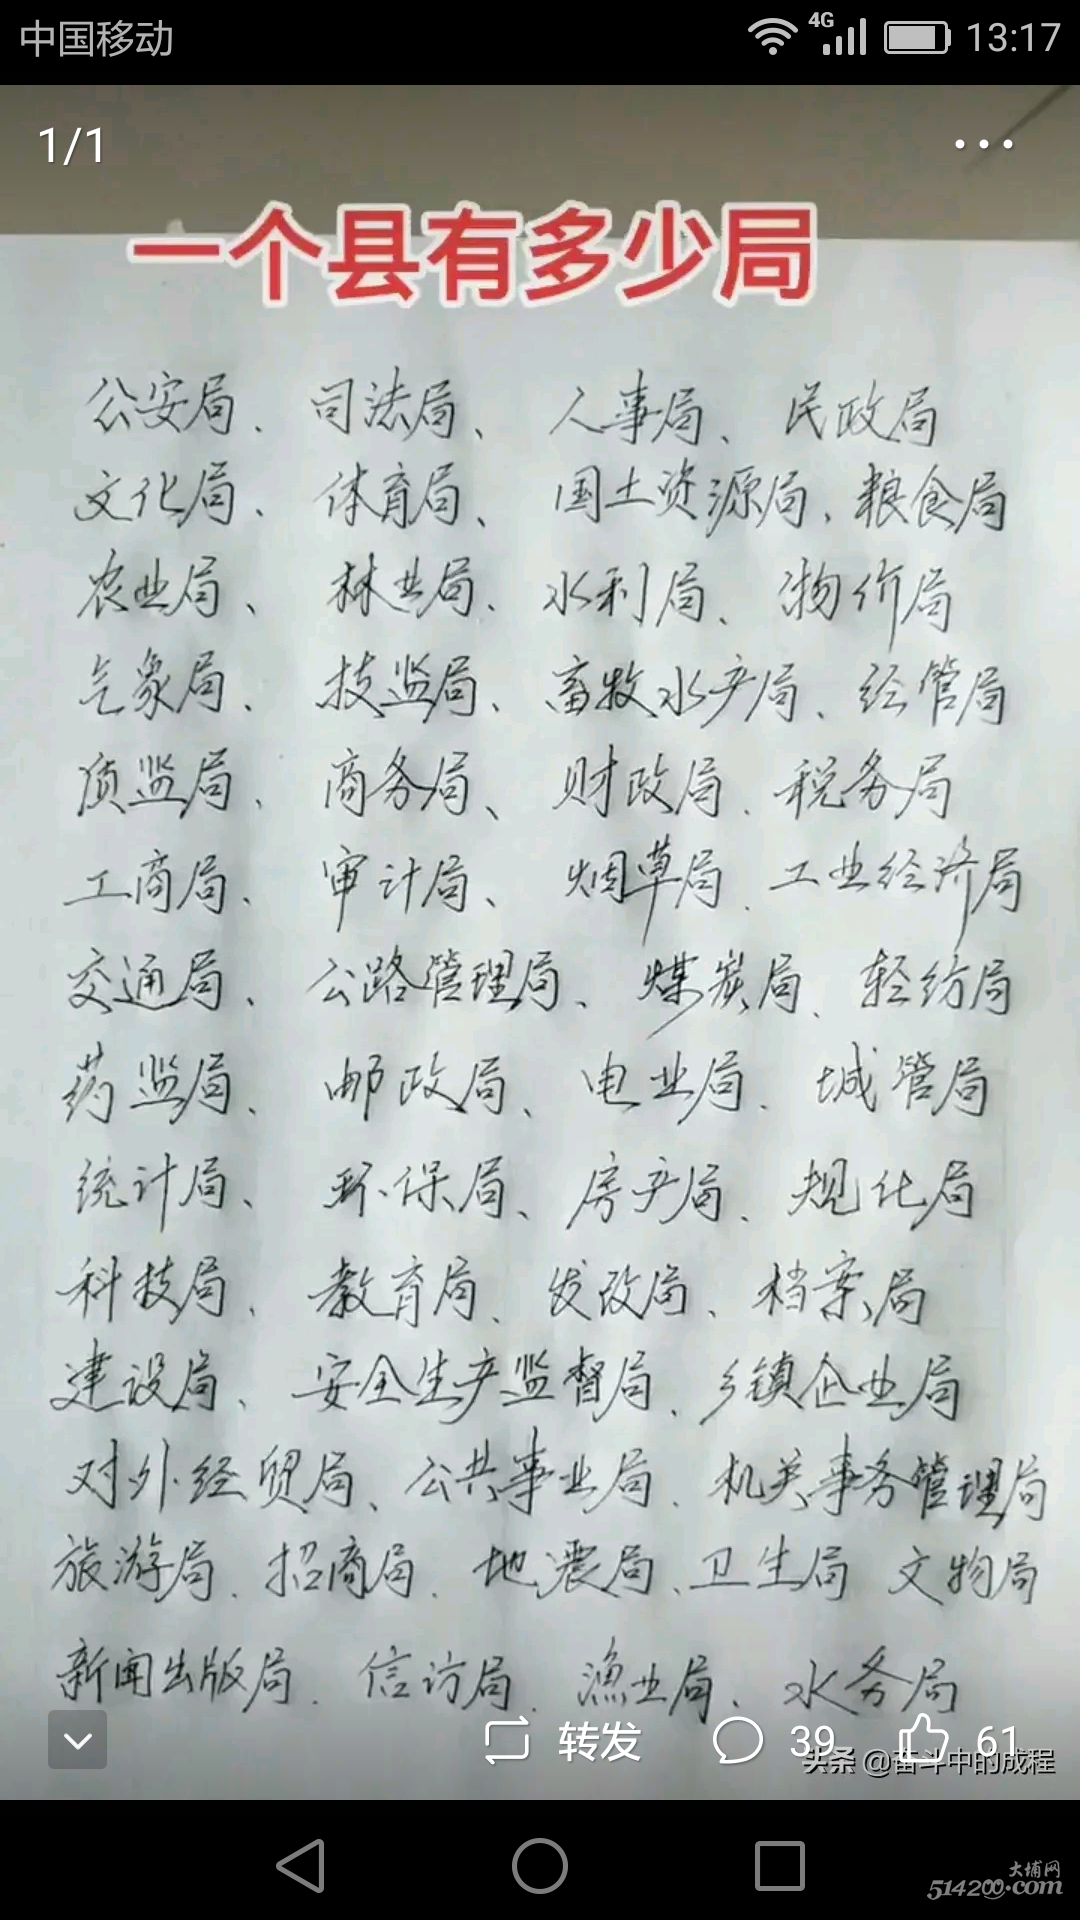 中国移动 4G 13:17
1/1
一个县有多少局
公安局、司法局、人事局、民政局
文化局、体育局、国土资源局、粮食局
农业局、林业局、水利局、物价局
气象局、技监局、畜牧水产局、经管局
质监局、商务局、财政局、税务局
工商局、审计局、烟草局、工业经济局
交通局、公路管理局、煤炭局、轻纺局
药监局、邮政局、电业局、城管局
统计局、环保局、房产局、规化局
科技局、教育局、发改局、档案局
建设局、安全生产监督局、乡镇企业局
对外经贸局、公共事业局、机关事务管理局
旅游局、招商局、地震局、卫生局 文物局
新闻出版局、信访局、渔业局、水务局
转发 39 61
头条 @奋斗中的成程
大埔网
514200.com